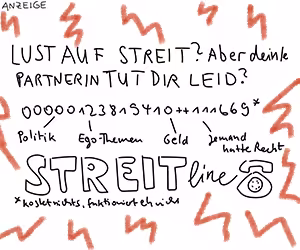 ANZEIGE
LUST AUF STREIT? Aber deine
PARTNERIN TUT DIR LEID?
00000123819410++111669*
Politik Ego-Themen Geld Jemand
hatte Recht
STREITline
*kostet nichts, funktioniert eh nicht